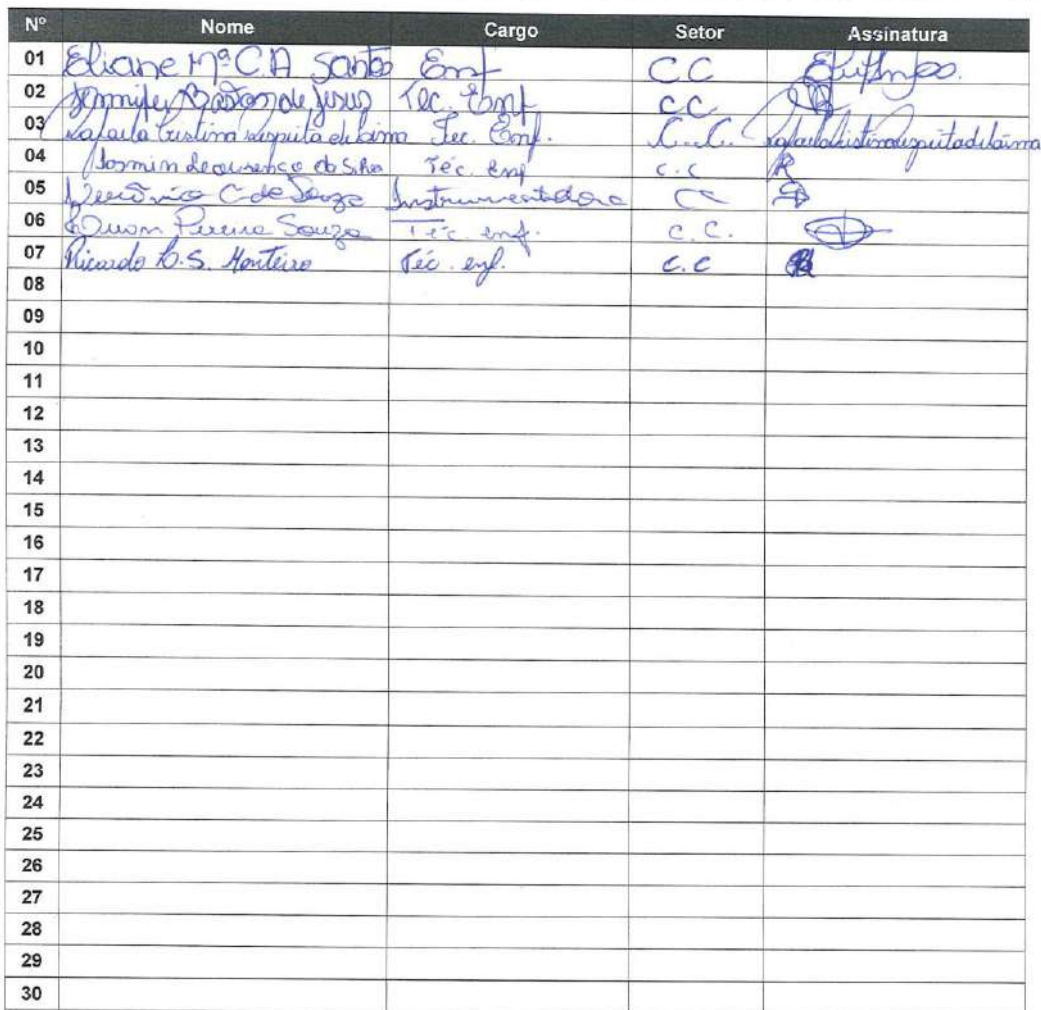 Nº Nome Cargo Setor Assinatura
01 Eliane Mª C.A Santos Enf C C
02 Jennifer Bastos de Jesus Téc. Enf C C.
03 Rafaela Cristina de Lima Tec. Enf. C.C. Rafaela Cristina de Lima
04 Lourenço da Silva Téc. enf c.c
05 C de Souza Instrumentadora CC
06 Pereira Souza Téc. enf. C. C.
07 Ricardo B.S. Monteiro Téc. enf. c.c
08
09
10
11
12
13
14
15
16
17
18
19
20
21
22
23
24
25
26
27
28
29
30